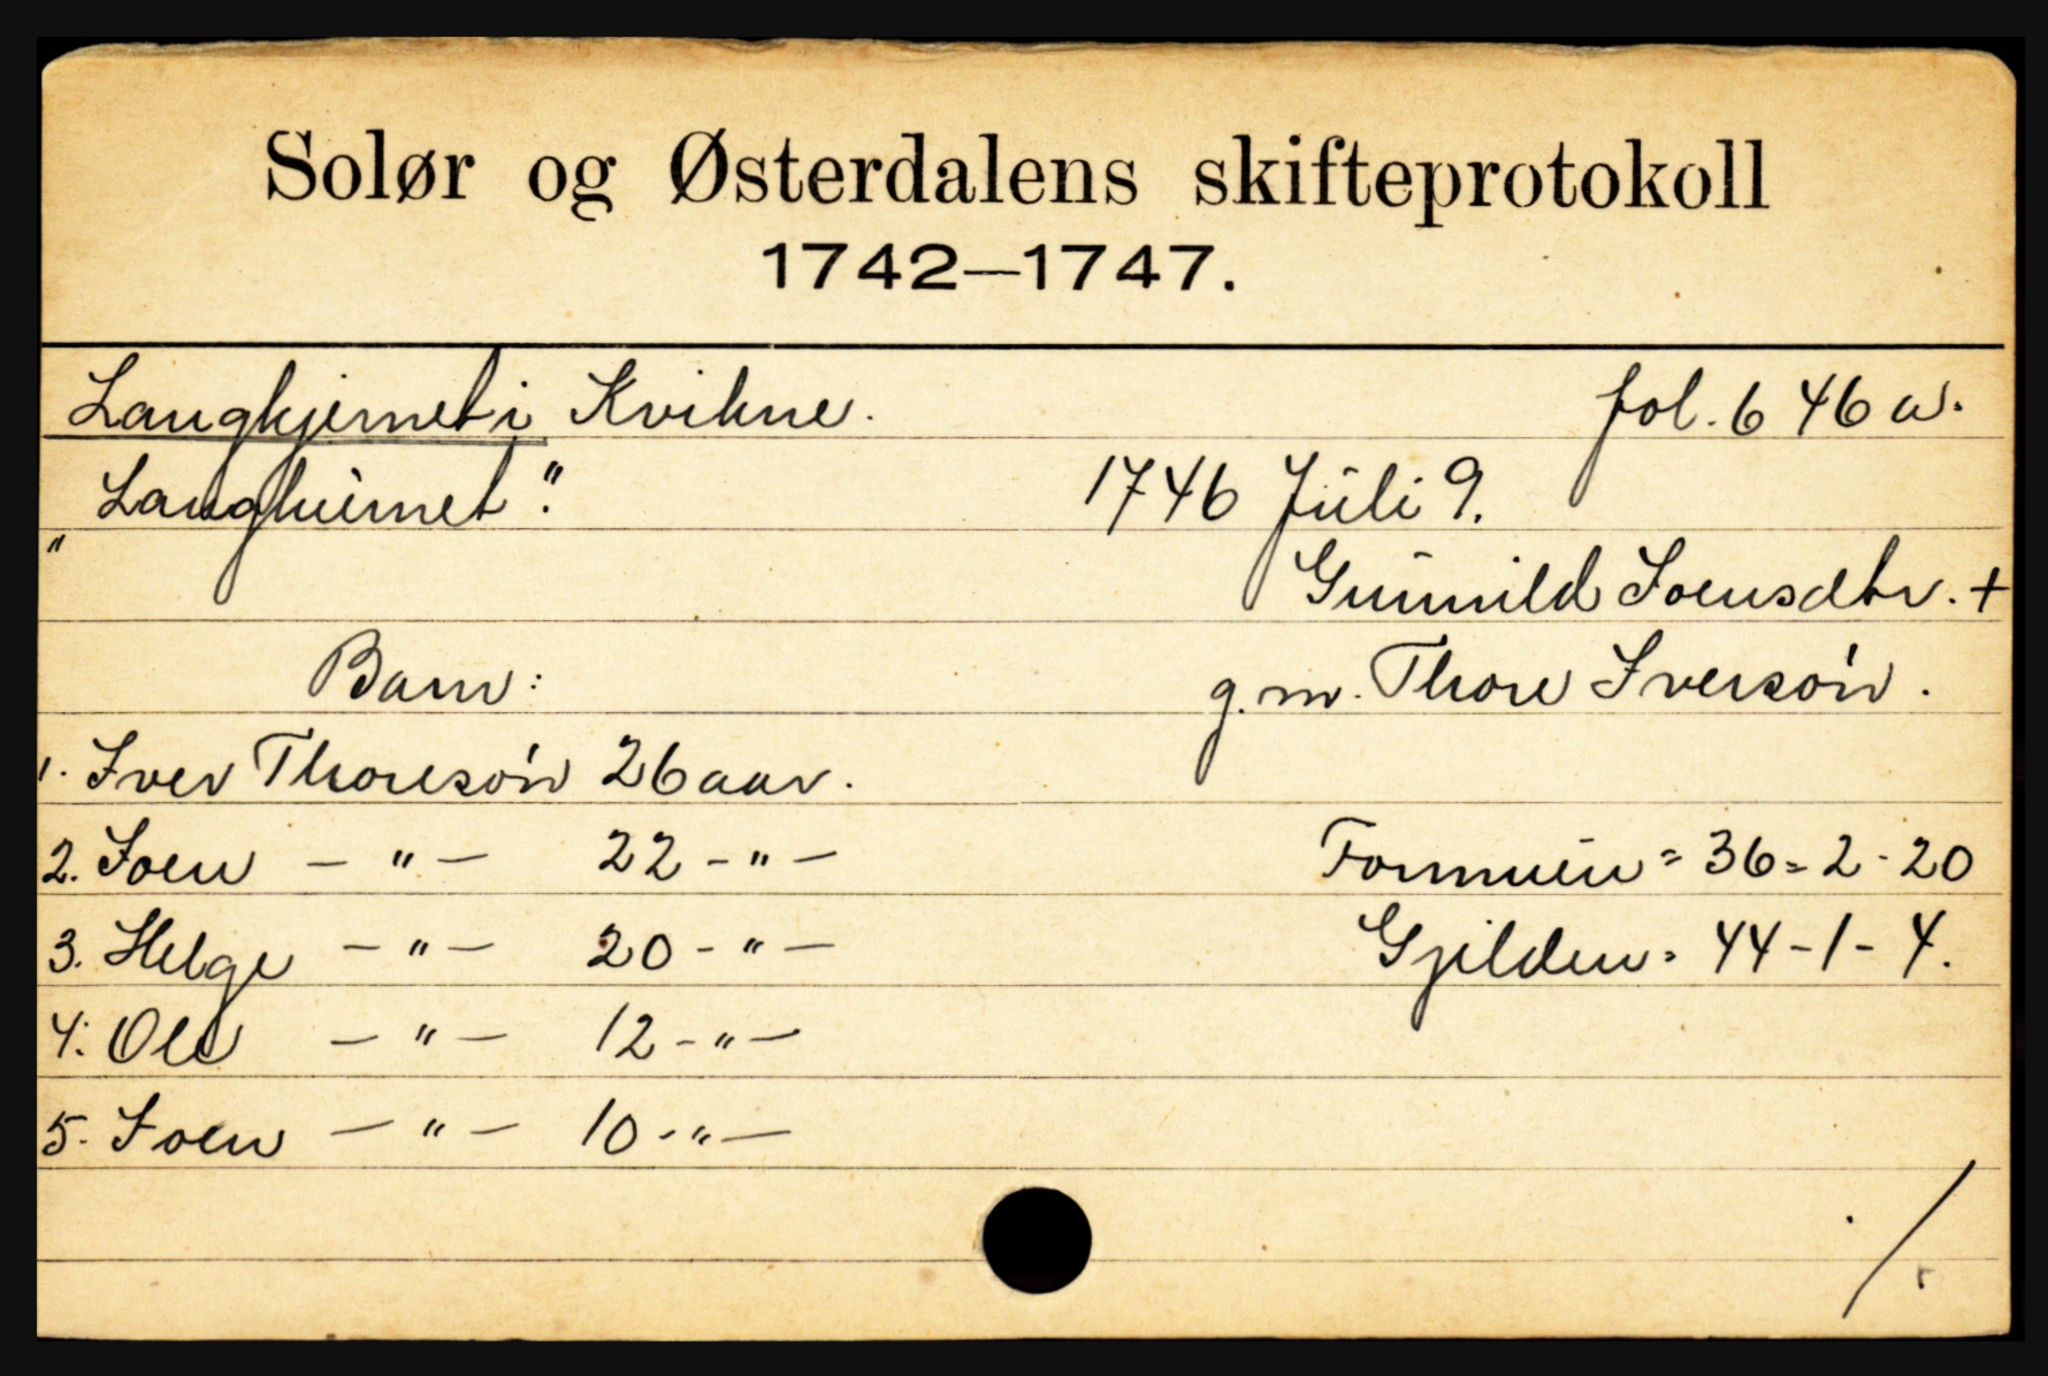 Solør og Østerdalens skifteprotokoll
1742—1747.
Langkjernet i Kvikne. fol. 646 a.
„Langkiernet". 1746 Juli 9.
Gunnild Joensdtr. +
Barn: g. m. Thore Iversøn.
1. Iver Thoresøn 26 aar.
2. Joen — " — 22 - " — Formuen = 36 = 2 - 20
3. Helge — " — 20 - " — Gjelden = 44 - 1 - 4.
4. Ole — " — 12 - " —
5. Joen — " — 10 - " —
./.